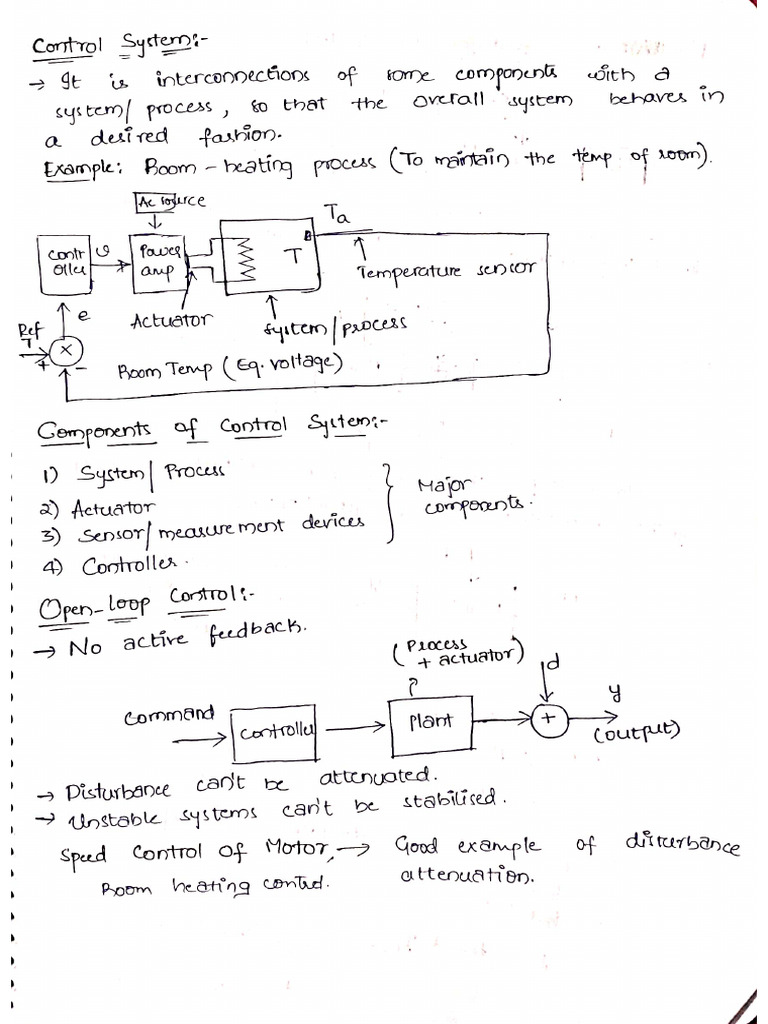 Control System:-
→ It is interconnections of some components with a
system/ process, so that the overall system behaves in
a desired fashion.
Example: Room-heating process (To maintain the temp of room).
Ac source
Ta
contr
oller
v
Power
amp
T
Temperature sensor
Actuator
system/process
e
Ref
T
+
×
-
Room Temp (Eq. voltage)
Components of Control System:-
1) System/ Process
2) Actuator
3) Sensor/measurement devices
4) Controller.
Major
components.
Open-loop Control:-
→ No active feedback.
(Process
+ actuator)
d
Command
Controller
Plant
+
y
(output)
→ Disturbance can't be attenuated.
→ Unstable systems can't be stabilised.
Speed Control of Motor, → Good example of disturbance
Room heating control. attenuation.